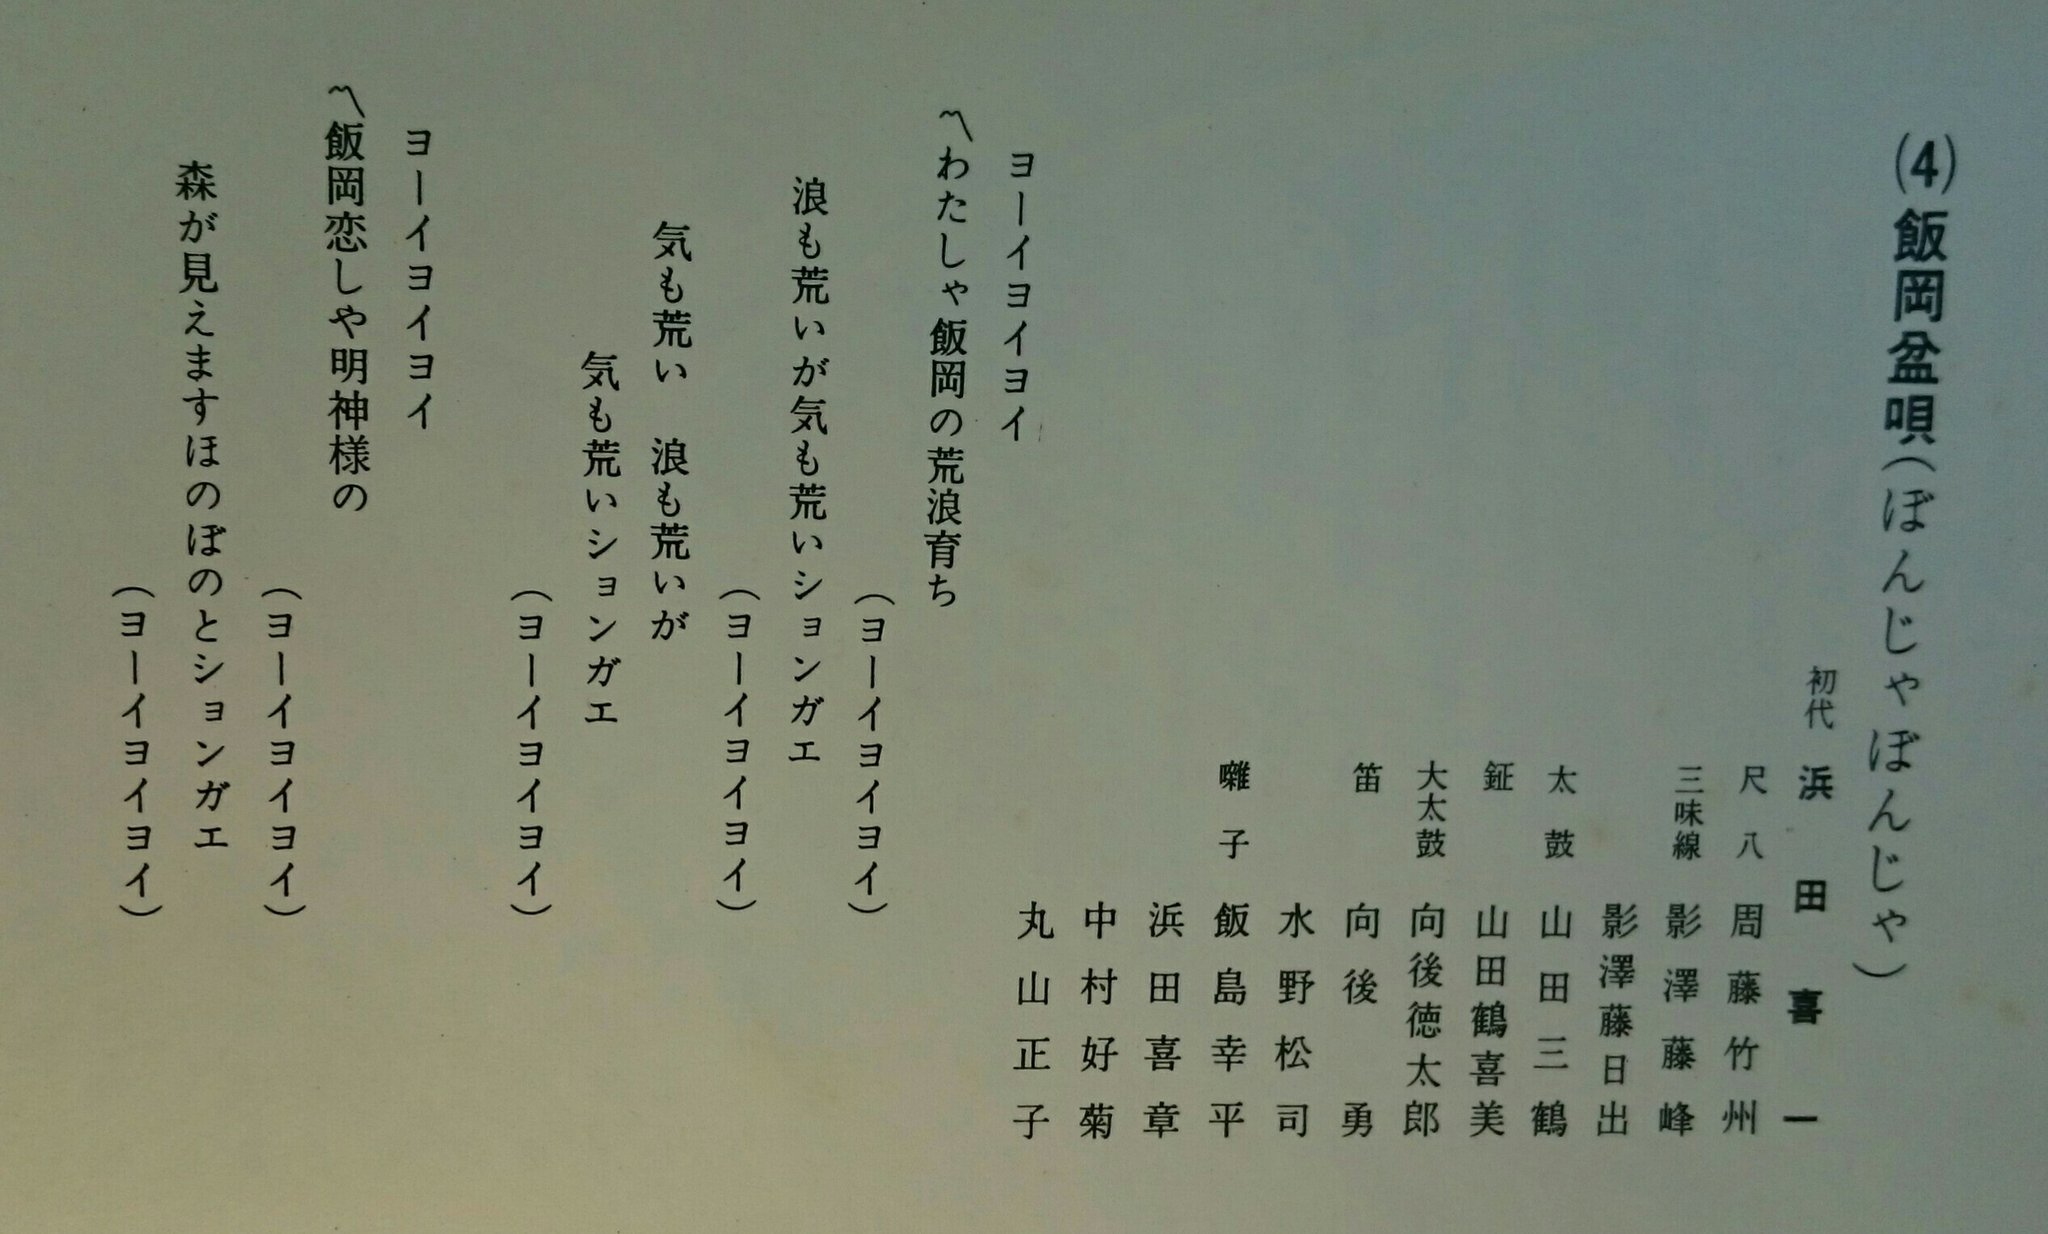 (4)飯岡盆唄(ぼんじゃぼんじゃ)
初代 浜田喜一
尺八 周藤竹州
三味線 影澤藤峰
影澤藤日出
太鼓 山田三鶴
鉦 山田鶴喜美
大太鼓 向後徳太郎
笛 向後勇
水野松司
囃子 飯島幸平
浜田喜章
中村好菊
丸山正子
ヨーイヨイヨイ
〽わたしゃ飯岡の荒浪育ち
(ヨーイヨイヨイ)
浪も荒いが気も荒いションガエ
(ヨーイヨイヨイ)
気も荒い 浪も荒いが
気も荒いションガエ
(ヨーイヨイヨイ)
ヨーイヨイヨイ
〽飯岡恋しや明神様の
(ヨーイヨイヨイ)
森が見えますほのぼのとションガエ
(ヨーイヨイヨイ)